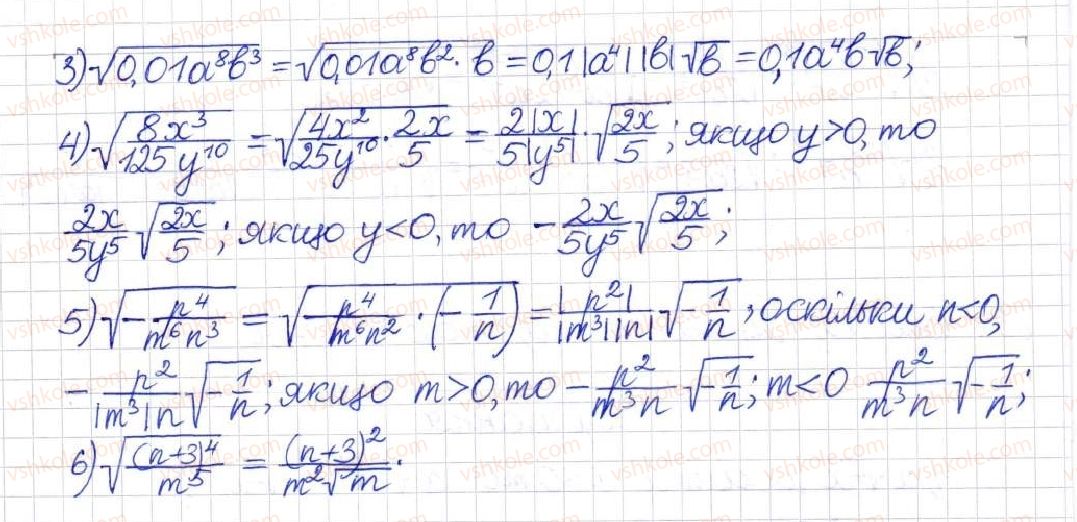 3) √(0,01a⁸b³) = √(0,01a⁸b² · b) = 0,1|a⁴||b|√b = 0,1a⁴b√b;
4) √(8x³/125y¹⁰) = √(4x²/25y¹⁰ · 2x/5) = 2|x|/5|y⁵| · √(2x/5); якщо y>0, то
2x/5y⁵ √(2x/5); якщо y<0, то - 2x/5y⁵ √(2x/5);
5) √(- p⁴/m⁶n³) = √(p⁴/m⁶n² · (- 1/n)) = |p²|/|m³||n| √(- 1/n); оскільки n<0,
- p²/|m³|n √(- 1/n); якщо m>0, то - p²/m³n √(- 1/n); m<0 p²/m³n √(- 1/n);
6) √((n+3)⁴/m⁵) = (n+3)²/m²√m.